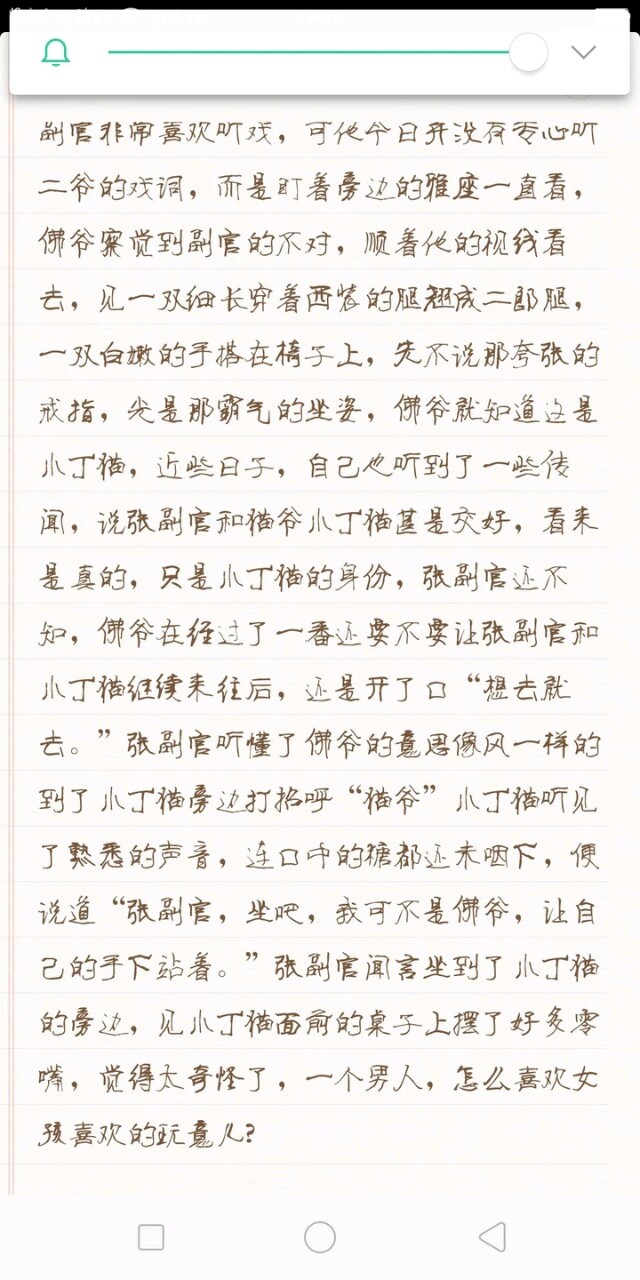 副官非常喜欢听戏，可他今日并没有专心听
二爷的戏词，而是盯着旁边的雅座一直看，
佛爷察觉到副官的不对，顺着他的视线看
去，见一双细长穿着西装的腿翘成二郎腿，
一双白嫩的手搭在椅子上，先不说那夸张的
戒指，光是那霸气的坐姿，佛爷就知道这是
小丁猫，近些日子，自己也听到了一些传
闻，说张副官和猫爷小丁猫甚是交好，看来
是真的，只是小丁猫的身份，张副官还不
知，佛爷在经过了一番还要不要让张副官和
小丁猫继续来往后，还是开了口“想去就
去。”张副官听懂了佛爷的意思像风一样的
到了小丁猫旁边打招呼“猫爷”小丁猫听见
了熟悉的声音，连口中的糖都还未咽下，便
说道“张副官，坐吧，我可不是佛爷，让自
己的手下站着。”张副官闻言坐到了小丁猫
的旁边，见小丁猫面前的桌子上摆了好多零
嘴，觉得太奇怪了，一个男人，怎么喜欢女
孩喜欢的玩意儿？